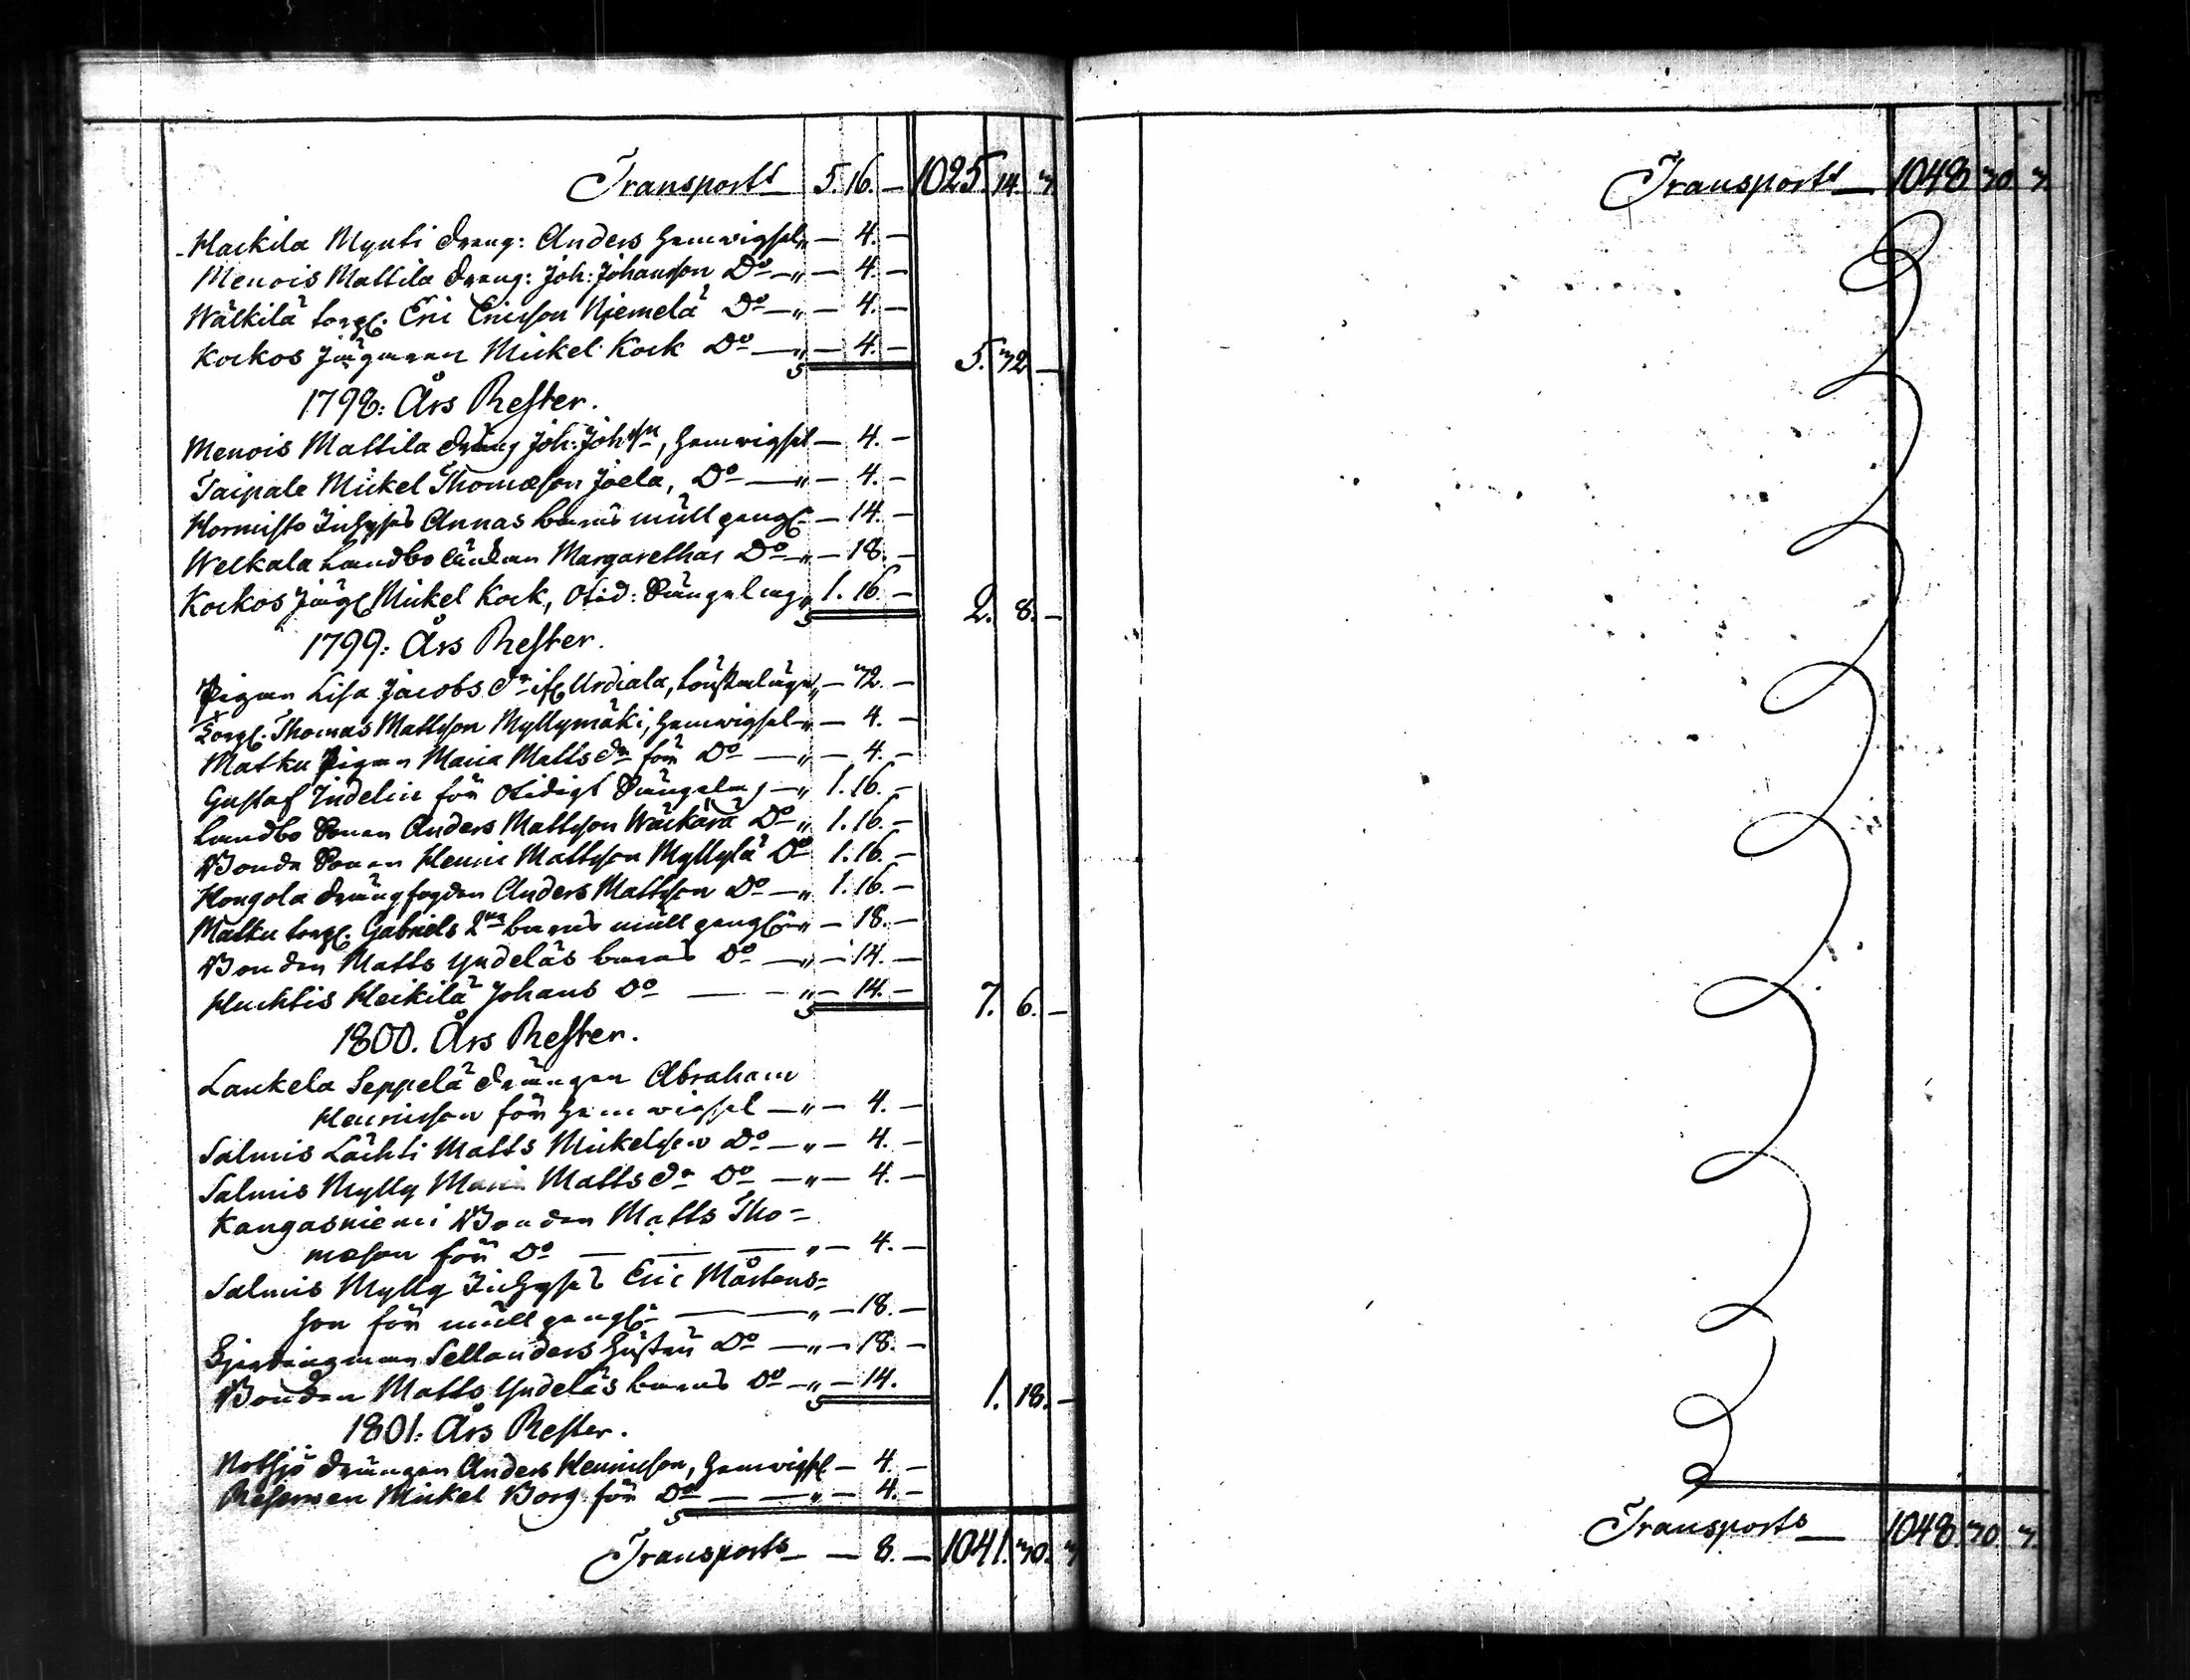 Transport — 5. 16. — 1025. 14. 7.
Hackila Mynti dräng: Anders hemvigsel „ — 4. —
Menois Mattila dräng: Joh: Johansson Do — „ — 4. —
Wälkilä torp. Eric Ericsson Njemelä Do — „ — 4. —
Kockos Jägaren Mickel Kock Do — „ — 4. — 5. 72. —
1798: Års Rester.
Menois Mattila dräng Joh: Johss:n, hemvigsel — 4. —
Taipale Mickel Thomæson Joela, Do — „ — 4. —
Hormisto Inhyses Annas barns mullpengr — 14. —
Welkala Landbo Enkan Margarethas Do — „ — 18. —
Kockos Jäg. Mickel Kock, Otid: Sängelag „ 1. 16. — 2. 8. —
1799: Års Rester.
Pigan Lisa Jacobs dr ifr. Urdiala, „ — 72. —
Torp. Thomas Mattsson Myllymäki, hemvigsel — „ — 4. —
Matku Pigan Maria Matts dr för Do — „ — 4. —
Gustaf Indelin för Otidigt Sängelag — „ 1. 16. —
Landbo Sonen Anders Mattsson Wäckärä Do — „ 1. 16. —
Bonde Sonen Henric Mattsson Myllylä Do 1. 16. —
Hongola drängfogden Anders Mattsson Do — „ 1. 16. —
Matku torp. Gabriels 2ne barns mullpengr „ — 18. —
Bonden Matts Yndeläs barns Do — „ — 14. —
Huchtis Heikilä Johans Do — — „ — 14. — 7. 6. —
1800. Års Rester.
Lankela Seppelä drängen Abraham
Henricsson för hemvigsel — „ — 4. —
Salmis Lächti Matts Mickelsson Do — „ — 4. —
Salmis Mylly Maria Matts dr Do — „ — 4. —
Kangasniemi Bonden Matts Tho=
mæson för Do — — — „ — 4. —
Salmis Mylly Inhyses Eric Mårtens=
son för mullpengr — — „ — 18. —
Fjerdingman Sellanders hustru Do — „ — 18. —
Bonden Matts Yndeläs barns Do — „ — 14. 1. 18. —
1801: Års Rester.
Notsjö drängen Anders Henricsson, hemvigsl — 4. —
Mickel Borg för Do — — „ — 4. —
Transport — — 8. — 1041. 70. 7
Transport — 1048. 70. 7.
Transport — 1048. 70. 7.